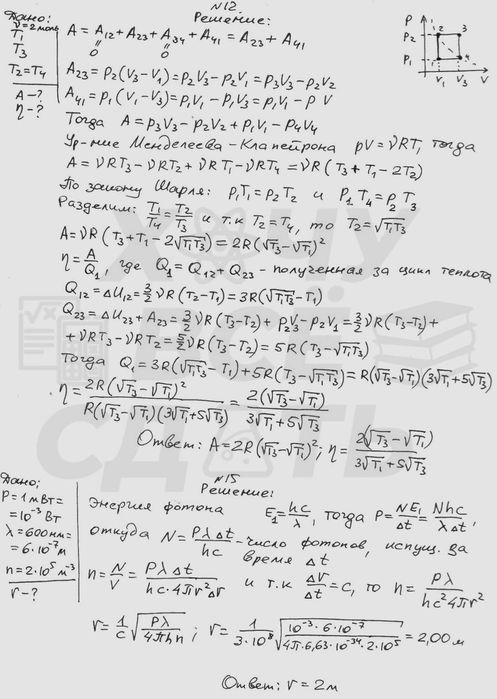 №12
Дано: Решение:
ν=2 моль
T₁
T₃
T₂=T₄
A-?
η-?
A = A₁₂ + A₂₃ + A₃₄ + A₄₁ = A₂₃ + A₄₁
0 0
P 2 3
P₂
P₁ 1 4
V₁ V₃ V
A₂₃ = p₂(V₃-V₁) = p₂V₃ - p₂V₁ = p₃V₃ - p₂V₂
A₄₁ = p₁(V₁-V₃) = p₁V₁ - p₁V₃ = p₁V₁ - p V
Тогда A = p₃V₃ - p₂V₂ + p₁V₁ - p₄V₄
Ур-ние Менделеева-Клапейрона pV = νRT, тогда
A = νRT₃ - νRT₂ + νRT₁ - νRT₄ = νR(T₃ + T₁ - 2T₂)
По закону Шарля: p₁T₁ = p₂T₂ и p₁T₄ = p₂T₃
Разделим: T₁/T₄ = T₂/T₃ и т.к T₂=T₄, то T₂=√T₁T₃
A = νR(T₃ + T₁ - 2√T₁T₃) = 2R(√T₃-√T₁)²
η = A/Q₁, где Q₁ = Q₁₂ + Q₂₃ - полученная за цикл теплота
Q₁₂ = ΔU₁₂ = 3/2 νR(T₂-T₁) = 3R(√T₁T₃-T₁)
Q₂₃ = ΔU₂₃ + A₂₃ = 3/2 νR(T₃-T₂) + p₂V₃ - p₂V₁ = 3/2 νR(T₃-T₂) +
+ νRT₃ - νRT₂ = 5/2 νR(T₃-T₂) = 5R(T₃-√T₁T₃)
Тогда Q₁ = 3R(√T₁T₃-T₁) + 5R(T₃-√T₁T₃) = R(√T₃-√T₁)(3√T₁+5√T₃)
η = 2R(√T₃-√T₁)² / R(√T₃-√T₁)(3√T₁+5√T₃) = 2(√T₃-√T₁) / 3√T₁+5√T₃
Ответ: A = 2R(√T₃-√T₁)²; η = 2(√T₃-√T₁) / 3√T₁+5√T₃
№15
Дано: Решение:
P = 1мВт =
= 10⁻³ Вт
λ = 600нм =
= 6·10⁻⁷м
n = 2·10⁵ м⁻³
r-?
Энергия фотона E₁ = hc/λ, тогда P = NE₁/Δt = Nhc/λΔt,
откуда N = PλΔt/hc - число фотонов, испущ. за
время Δt
n = N/V = PλΔt / hc·4πr²Δr и т.к Δr/Δt = c, то n = Pλ / hc²4πr²
r = 1/c √(Pλ/4πhn); r = 1/3·10⁸ √(10⁻³·6·10⁻⁷ / 4π·6,63·10⁻³⁴·2·10⁵) = 2,00 м
Ответ: r = 2м
ХОЧУ
ВСЁ
СДАТЬ